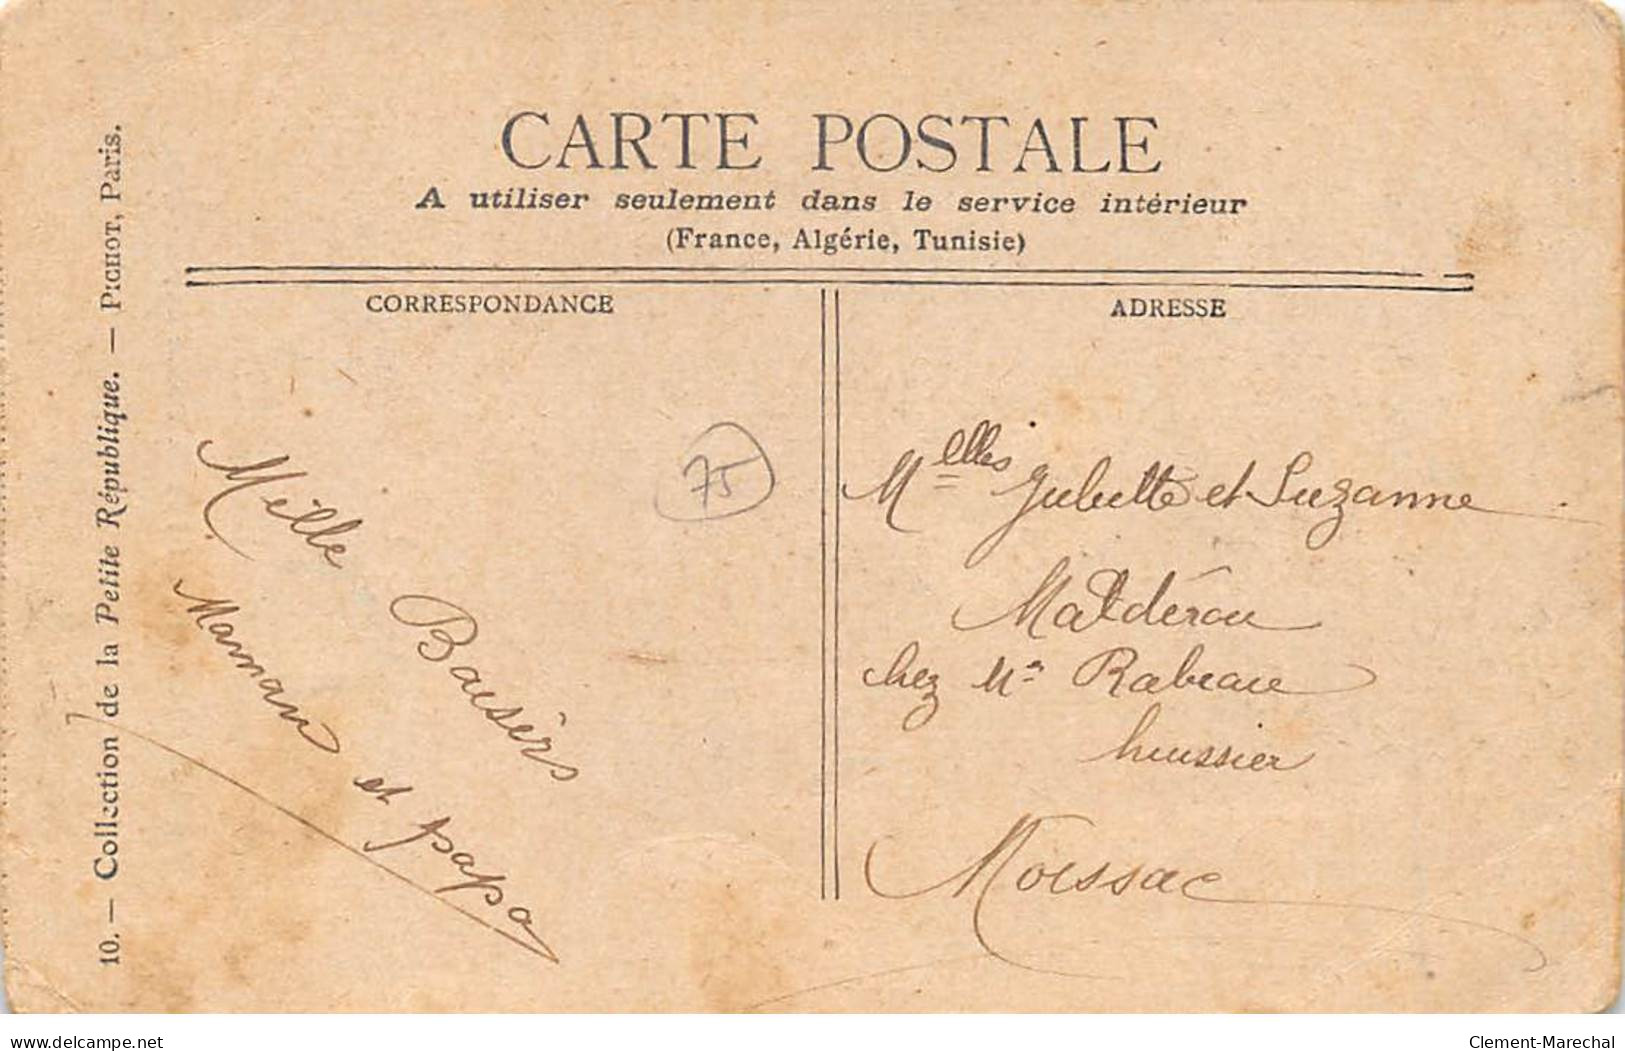 CARTE POSTALE
A utiliser seulement dans le service intérieur
(France, Algérie, Tunisie)
CORRESPONDANCE
ADRESSE
10. — Collection de la Petite République. — PICHOT, Paris.
75
Mille Baisers
Maman et papa
Melles Juliette et Suzanne
chez Mr Rabeau
huissier
Moissac
www.delcampe.net
Clement-Marechal